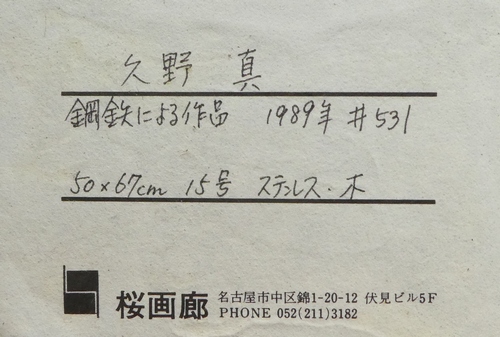 久野 真
鋼鉄による作品 1989年 #531
50×67cm 15号 ステンレス・木
桜画廊 名古屋市中区錦1-20-12 伏見ビル5F
PHONE 052(211)3182